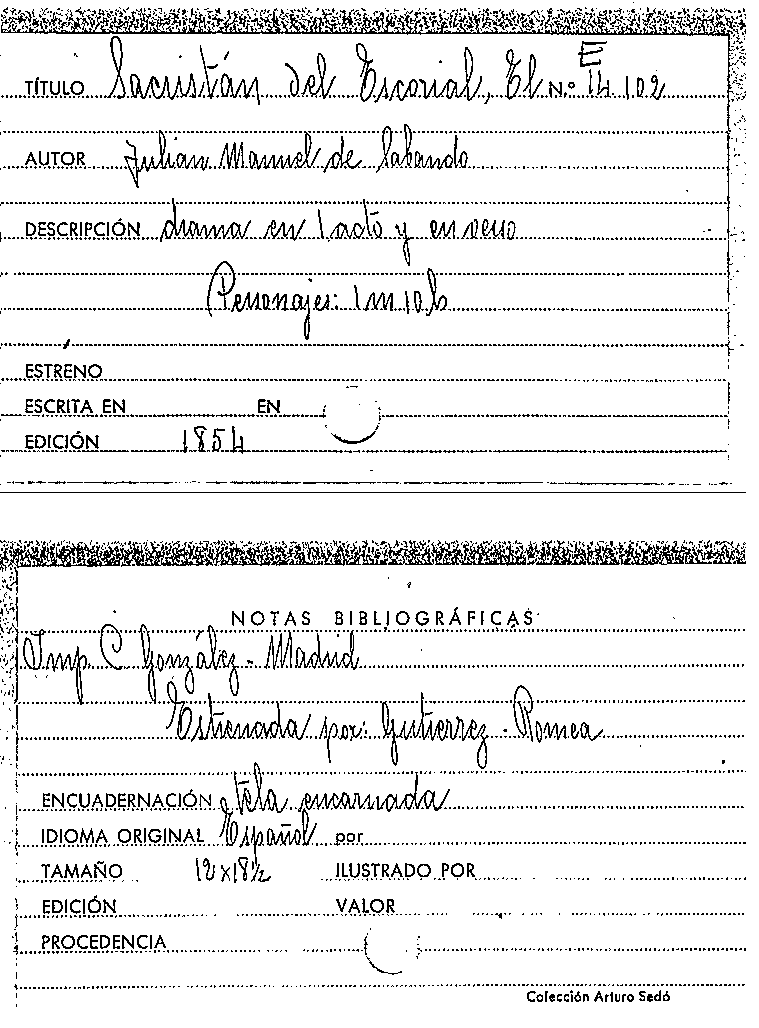 E
TÍTULO Sacristán del Escorial, El N.º 14.102
AUTOR Julian Manuel de Sabando
DESCRIPCIÓN drama en 1 acto y en verso
Personajes: 1 m 10 h
ESTRENO
ESCRITA EN EN
EDICIÓN 1854
NOTAS BIBLIOGRÁFICAS
Imp. C. González - Madrid
Estrenada por: Gutierrez - Romea
ENCUADERNACIÓN tela encarnada
IDIOMA ORIGINAL Español por
TAMAÑO 12 x 18 1/2 ILUSTRADO POR
EDICIÓN VALOR
PROCEDENCIA
Colección Arturo Sedó